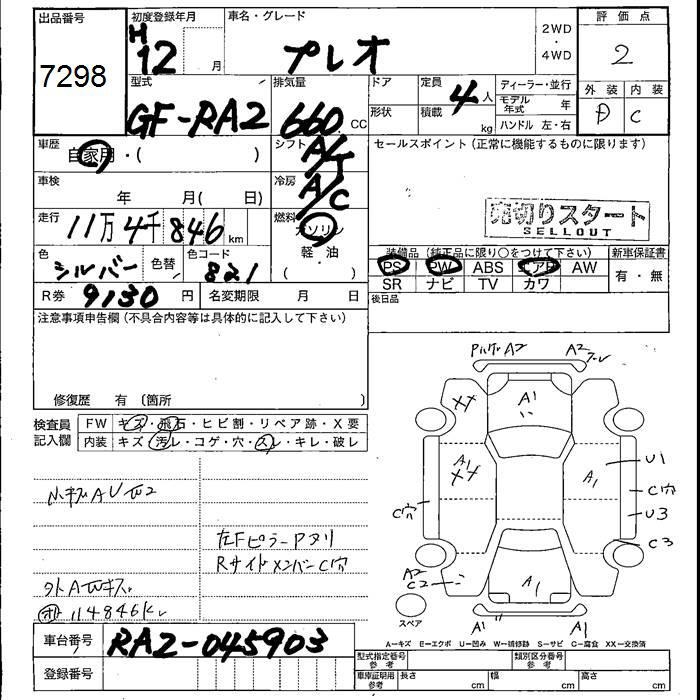 出品番号 初度登録年月 車名・グレード 評価点
7298 H12 月 プレオ 2WD・4WD 2
型式 排気量 ドア 定員 ディーラー・並行 外装 内装
GF-RA2 660 CC 形状 積載 4人 kg モデル年式 年 ハンドル 左・右 D C
車歴 自家用・( ) シフト A/T セールスポイント(正常に機能するものに限ります)
車検 年 月( 日) 冷房 A/C
売切りスタート
SELLOUT
走行 11万4千846km 燃料 ガソリン・軽油
色 シルバー 色替 色コード 821
装備品(純正品に限り○をつけて下さい) 新車保証書
PS PW ABS エアB AW 有・無
SR ナビ TV カワ
R券 9130円 名変期限 月 日 後日品
注意事項申告欄(不具合内容等は具体的に記入して下さい)
修復歴 有〔箇所 〕
検査員記入欄 FW キズ・飛石・ヒビ割・リペア跡・X要
内装 キズ・汚レ・コゲ・穴・スレ・キレ・破レ
A2 A2
A1
A1 A1 U1
C穴 C穴
U3
C3
A2
C2
A1
A1 A1
スペア
左Fピラー Pヌリ
Rサイドメンバー C穴
114846K
A=キズ E=エクボ U=凹み W=補修跡 S=サビ C=腐食 XX=交換済
車台番号 RA2-045903
型式指定番号 参考 類別区分番号 参考
登録番号 車庫証明用 参考 長さ cm 幅 cm 高さ cm